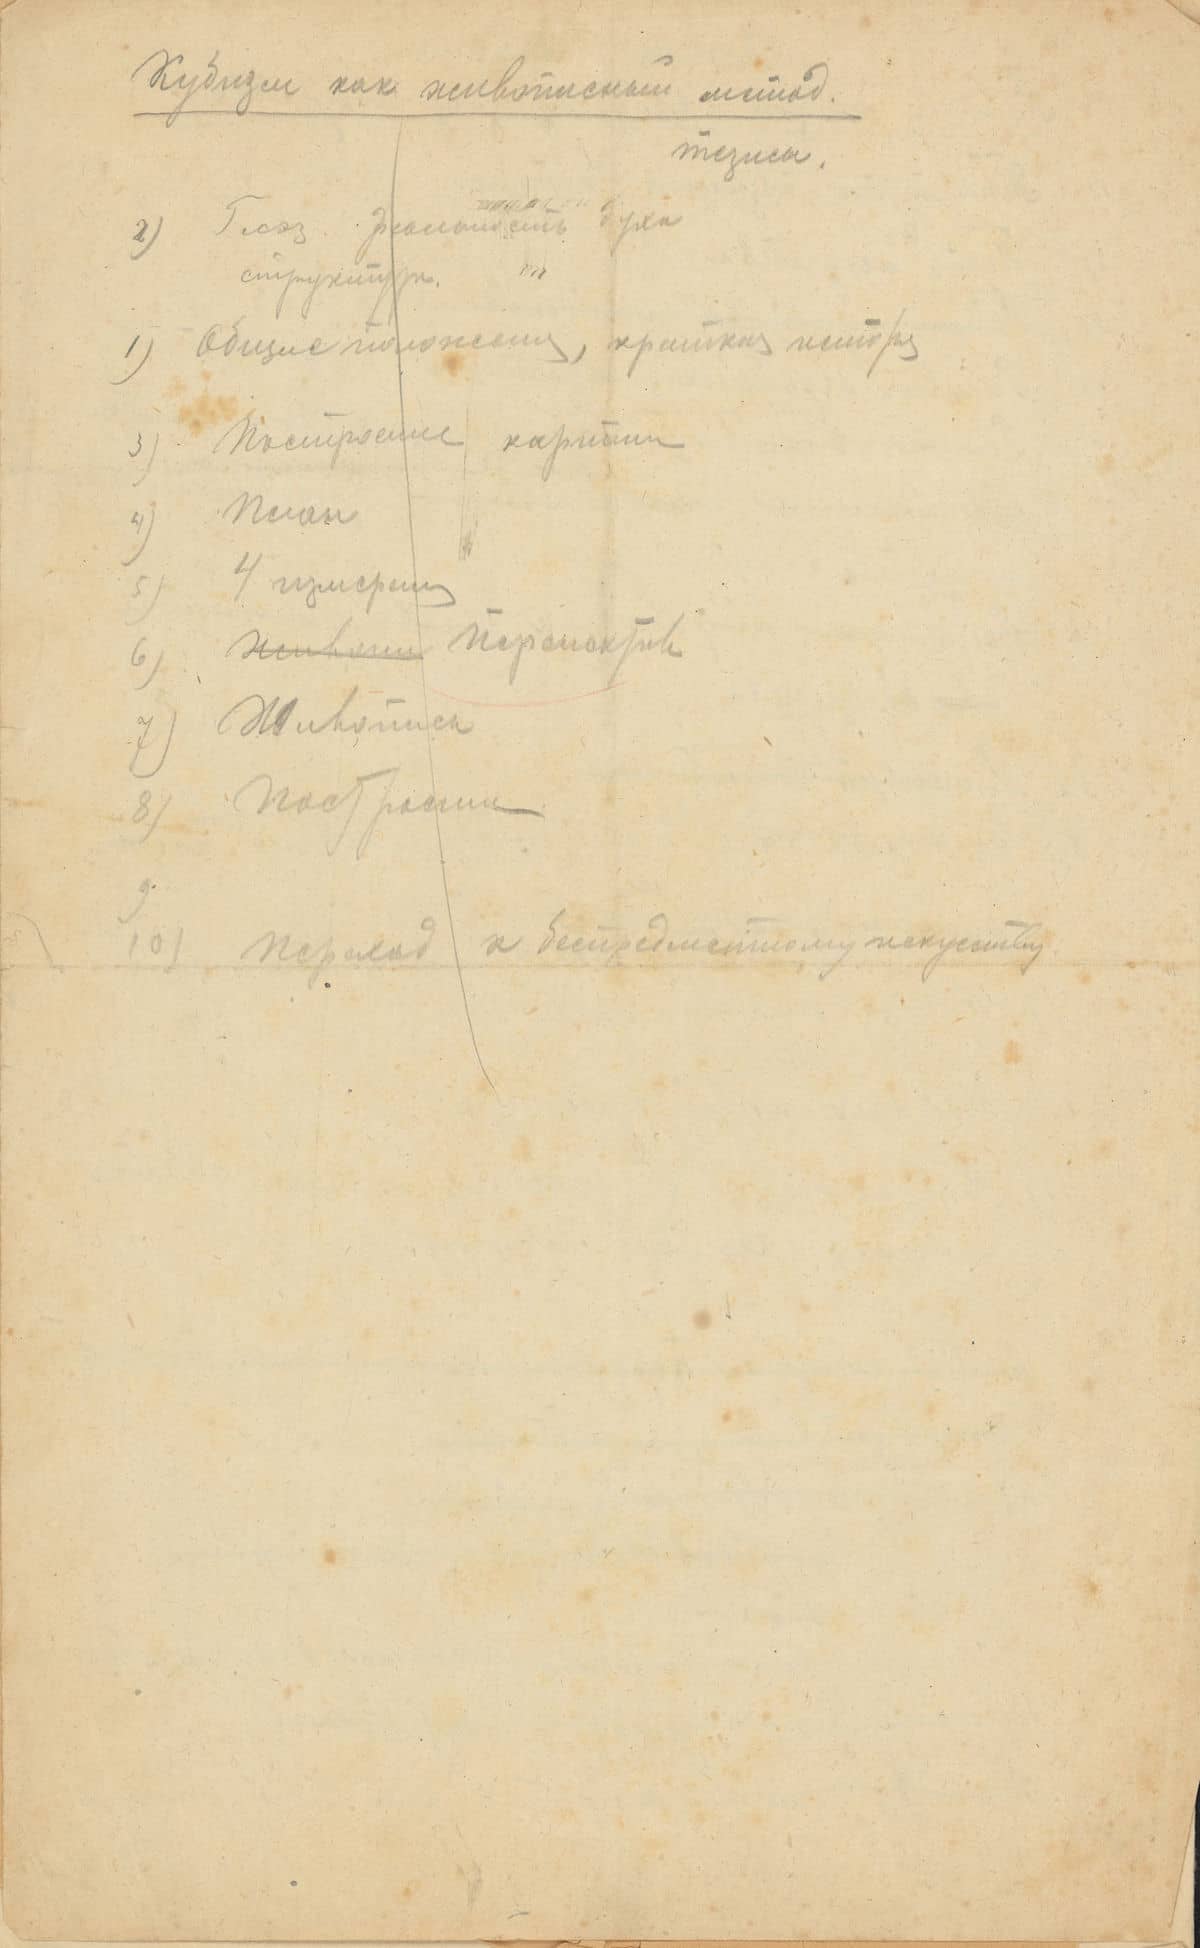 Кубизм как живописный метод.
тезисы.
2) Глэз реальность духа
структура.
1) Общие положения, краткая история
3) Построение картины
4) План
5) 4 измерения
6) Живопись Перспектив
7) Живопись
8) Построение
9.
10) Переход к беспредметному искусству.